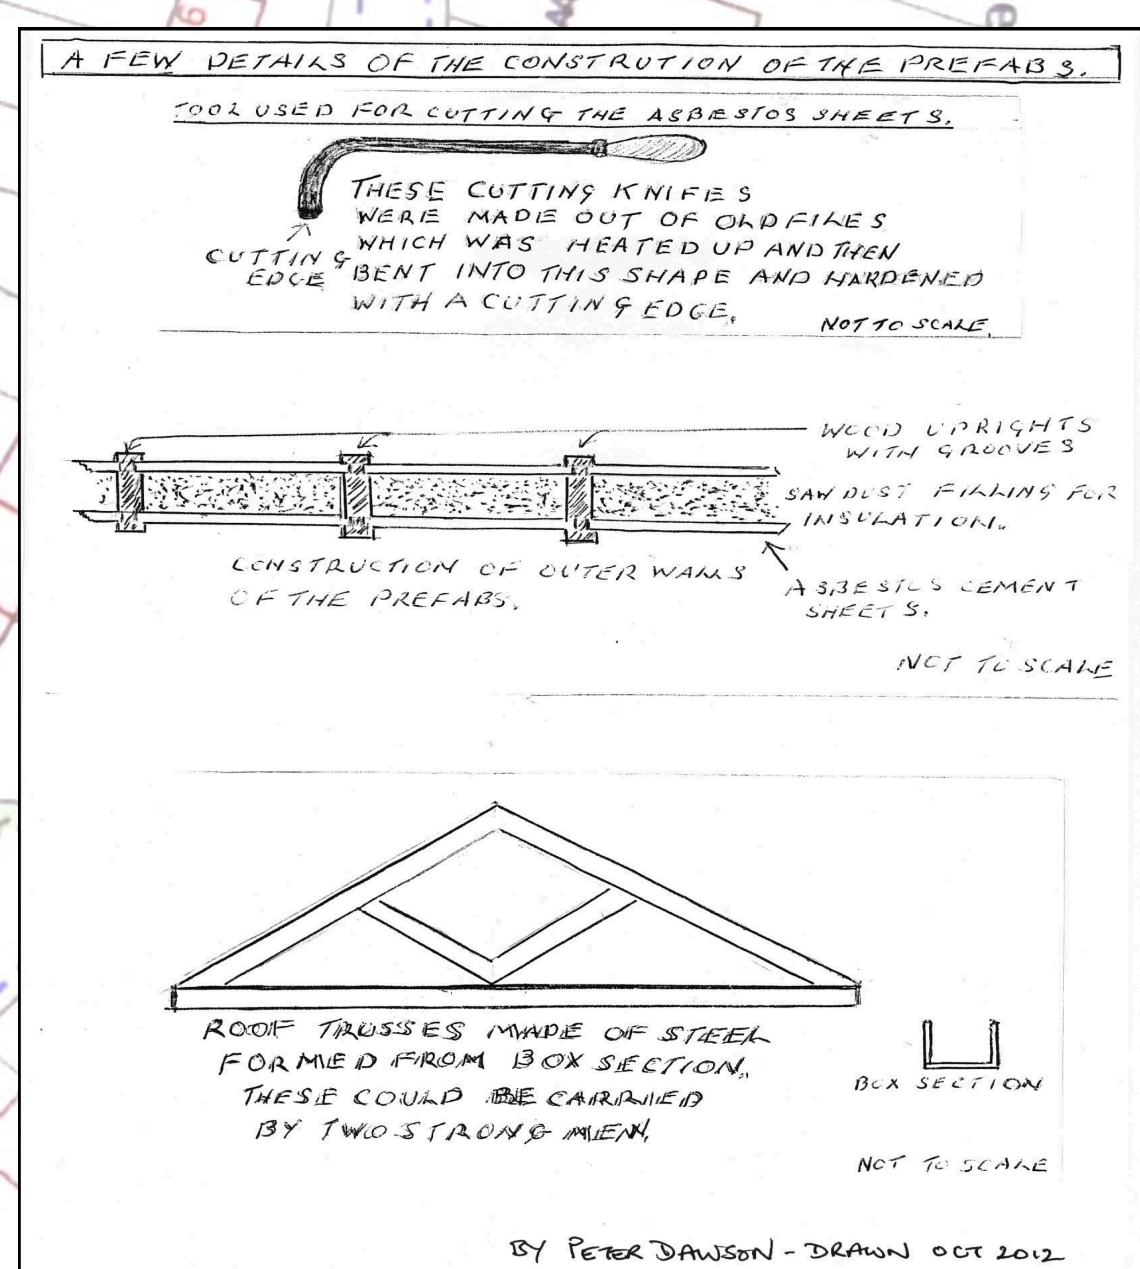 A FEW DETAILS OF THE CONSTRUTION OF THE PREFABS.
TOOL USED FOR CUTTING THE ASBESTOS SHEETS.
THESE CUTTING KNIFES
WERE MADE OUT OF OLD FILES
WHICH WAS HEATED UP AND THEN
BENT INTO THIS SHAPE AND HARDENED
WITH A CUTTING EDGE.
CUTTING
EDGE
NOT TO SCALE.
WOOD UPRIGHTS
WITH GROOVES
SAWDUST FILLING FOR
INSULATION.
CONSTRUCTION OF OUTER WALLS
OF THE PREFABS.
ASBESTOS CEMENT
SHEETS.
NOT TO SCALE
ROOF TRUSSES MADE OF STEEL
FORMED FROM BOX SECTION.
THESE COULD BE CARRIED
BY TWO STRONG MEN.
BOX SECTION
NOT TO SCALE
BY PETER DAWSON - DRAWN OCT 2012